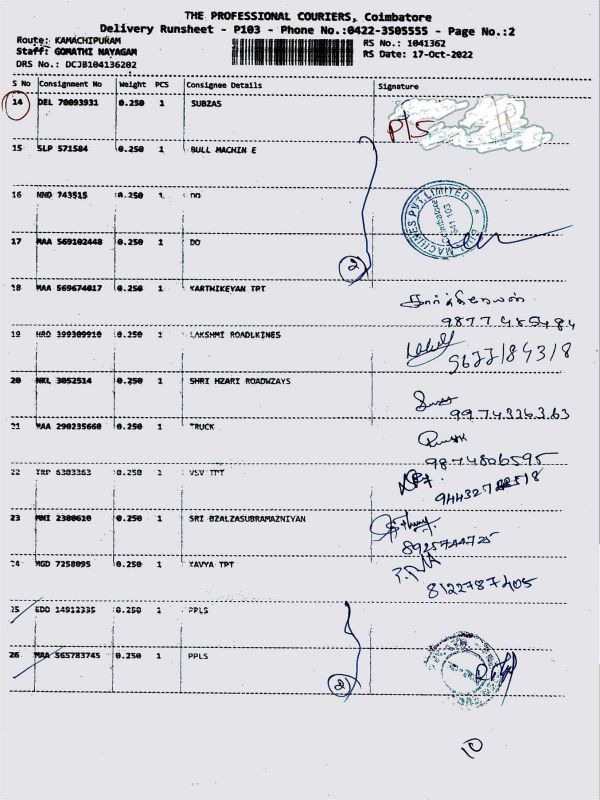 THE PROFESSIONAL COURIERS, Coimbatore
Delivery Runsheet - P103 - Phone No.:0422-3505555 - Page No.:2
Route: KAMACHIPURAM
Staff: GOMATHI NAYAGAM
DRS No.: DCJB104136202
RS No.: 1041362
RS Date: 17-Oct-2022
S No Consignment No Weight PCS Consignee Details Signature
14 DEL 70093931 0.250 1 SUBZAS
15 SLP 571584 0.250 1 BULL MACHIN E
16 NND 743515 0.250 1 DO
17 MAA 569102448 0.250 1 DO
2
18 MAA 569674017 0.250 1 KARTHIKEYAN TPT
கார்த்திகேயன்
9877485484
19 HRO 399309910 0.250 1 LAKSHMI ROADLKINES
9677184318
20 NKL 3052514 0.250 1 SHRI HZARI ROADWZAYS
9974336363
21 MAA 290235660 0.250 1 TRUCK
9874806595
22 TRP 6303363 0.250 1 VSV TPT
23 MNI 2380610 0.250 1 SRI BZALZASUBRAMAZNIYAN
8925744725
24 MGD 7258095 0.250 1 KAVYA TPT
8122787405
25 EDO 14912335 0.250 1 PPLS
26 MAA 565783745 0.250 1 PPLS
2
10